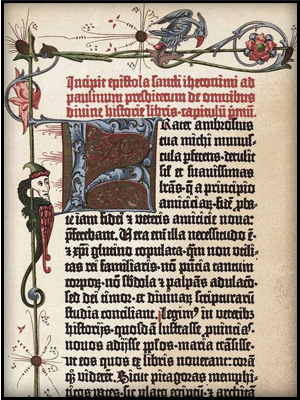 Incipit epistola sancti iheronimi ad
paulinum presbiterum de omnibus
divine historie libris. capitulū pmū.
Frater ambrosius
tua michi munus-
cula pferens. detulit
sil' et suauissimas
lrās. q̄ a principio
amiciciaꝝ. fidē pba-
te iam fidei et veteris amicicie noua:
pferebant. Vera eni illa necessitudo ē.
et xpi glutino copulata. qm non vtili-
tas rei familiaris. nō pntia tantum
corpoꝝ. nō sbdola et palpās adulacō:
sed dei timor. et diuinaꝝ scripturarū
studia conciliant. Legimꝰ in veterib
historijs. quosdā lustrasse puincias.
nouos adijsse pplos. maria trāsisse.
ut eos quos ex libris nouerant: corā
qꝫ viderēt. Sicut pitagoras memphi-
ticos vates. sic plato egiptū. et architā